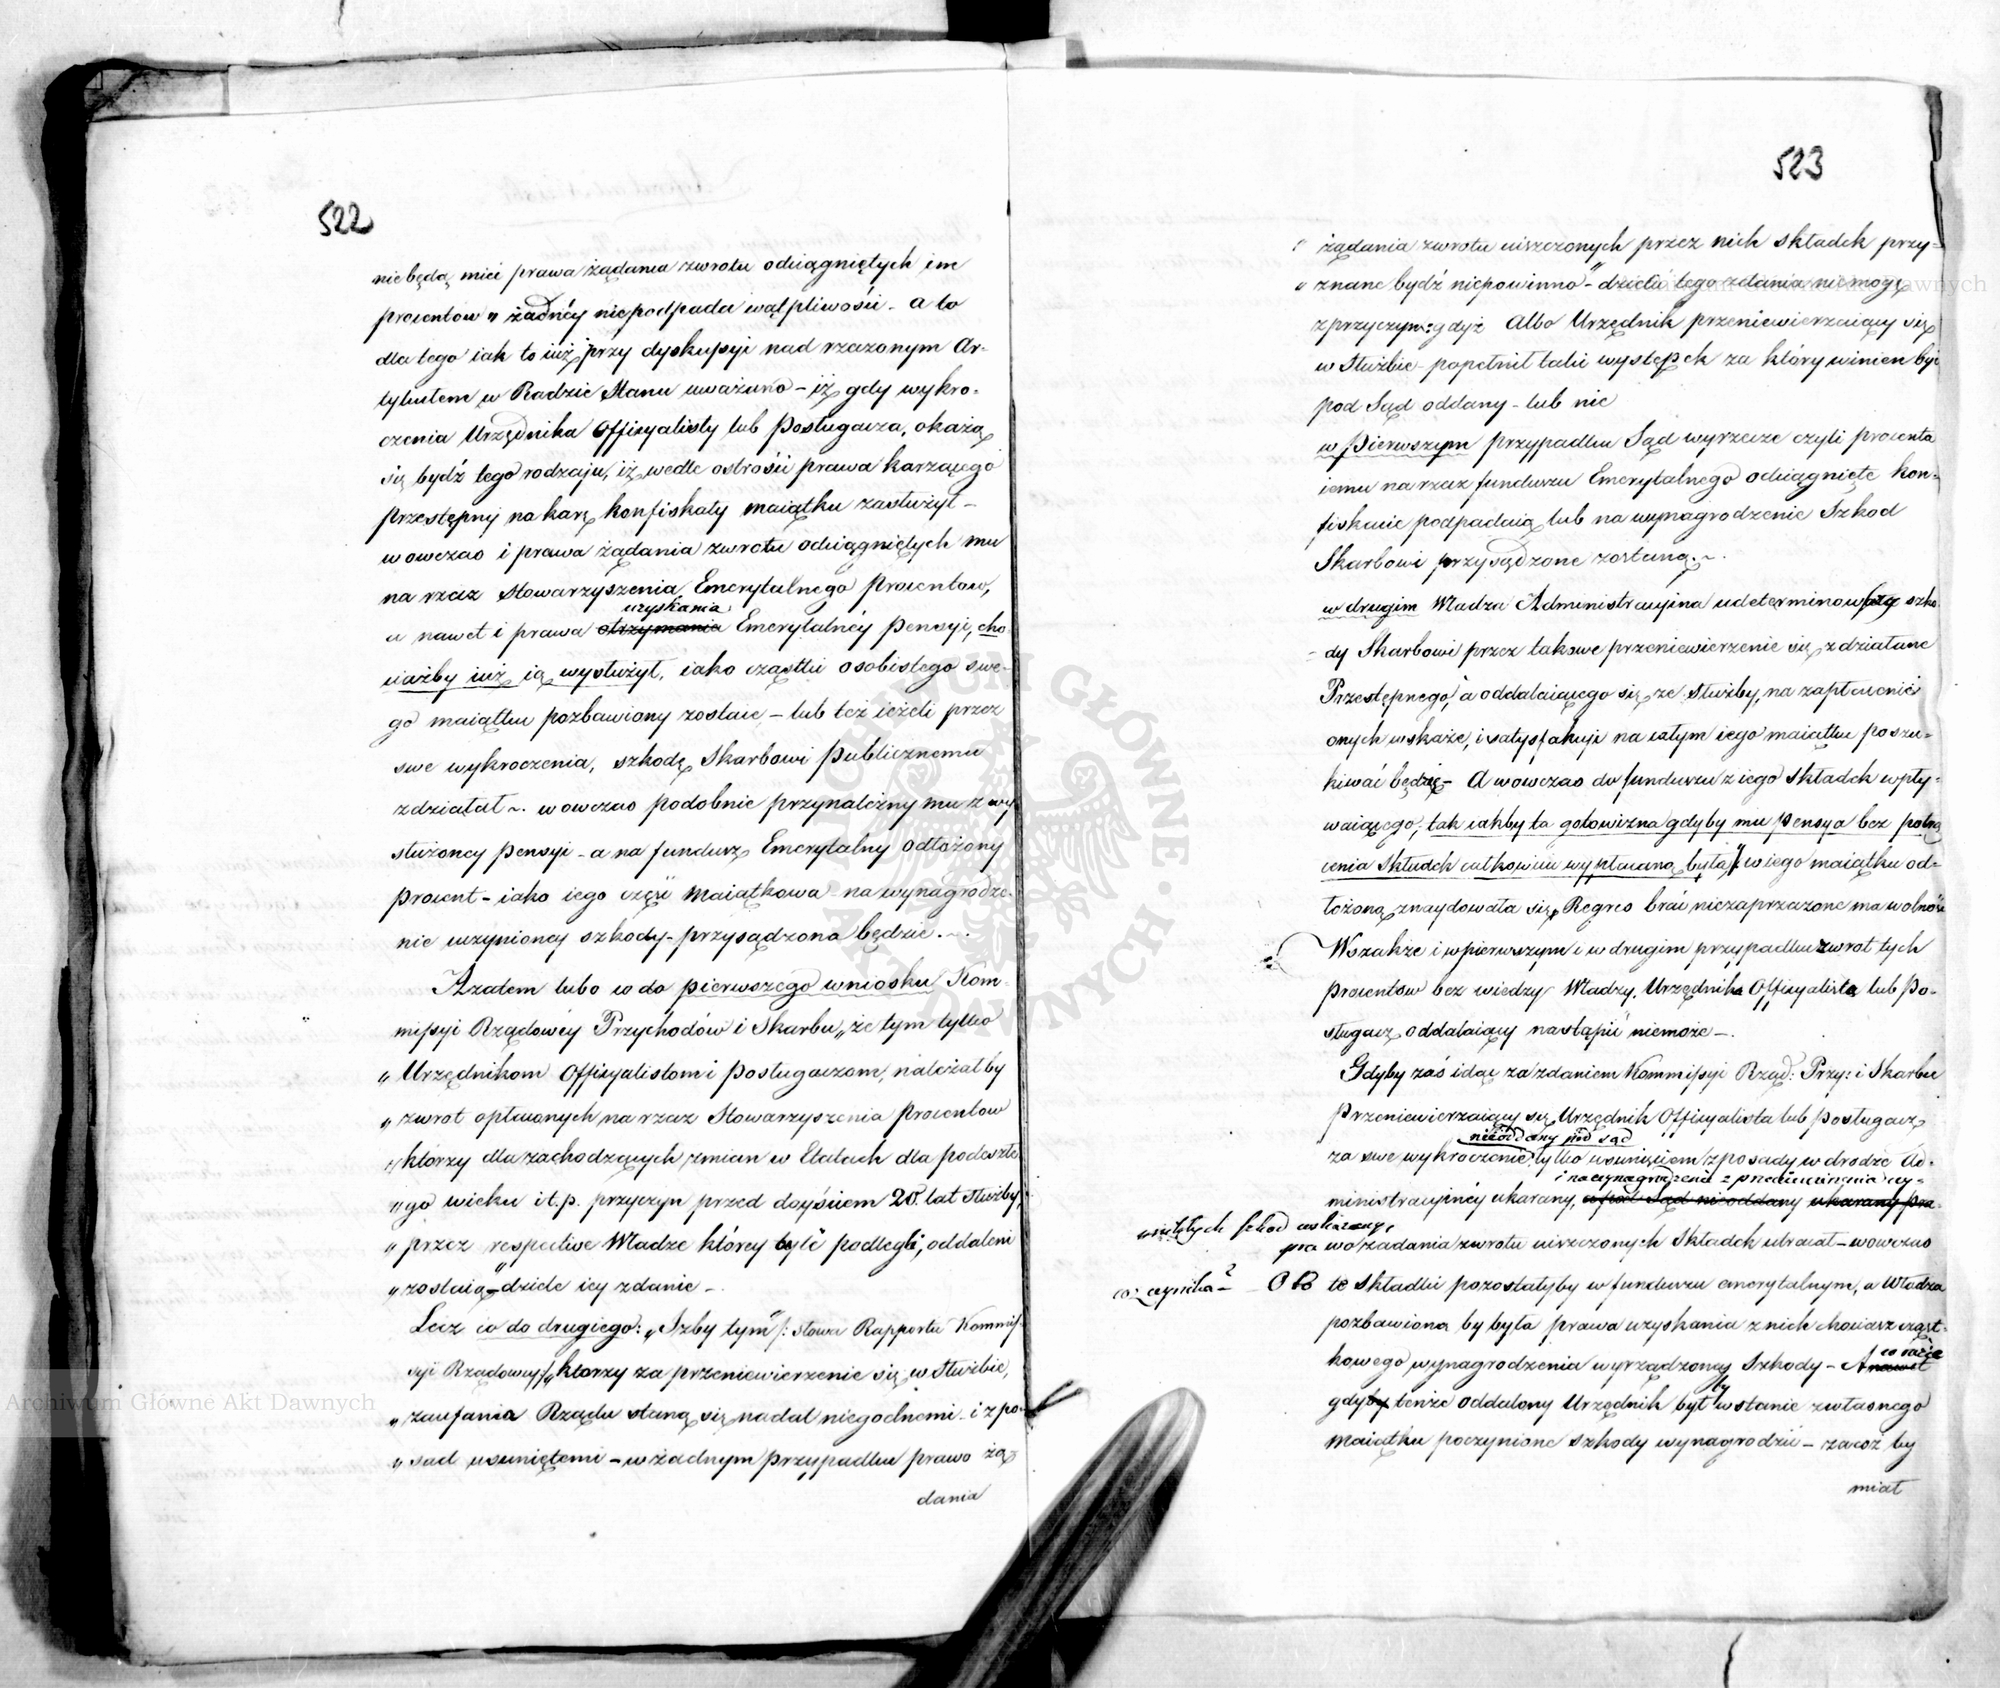 522
niebędą mieć prawa żądania zwrotu odciągniętych im
procentow „ żadnéy niepodpada wątpliwości - a to
dla tego iak to iuż przy dyskussyi nad rzeczonym Ar-
tykułem w Radzie Stanu uważano - iż gdy wykro-
czenia Urzędnika Officyalisty lub Posługacza, okażą
się bydź tego rodzaju, iż wedle ostrości prawa karzącego
przestępny na karę konfiskaty maiątku zasłużył -
wowczas i prawa żądania zwrotu odciągniętych mu
na rzecz Stowarzyszenia Emerytalnego Procentow,
uzyskania
a nawet i prawa otrzymania Emerytalnéy Pensyi, cho-
ciażby iuż ią wysłużył, iako cząstki osobistego swe-
go maiątku pozbawiony zostaie - lub też ieżeli przez
swe wykroczenia, szkodę Skarbowi Publicznemu
zdziałał ~. wowczas podobnie przynależny mu z wy
służoney Pensyi - a na fundusz Emerytalny odłożony
procent - iako iego część Maiątkowa na wynagrodze-
nie uczynioney szkody - przysądzona będzie. ~.
Azatem lubo co do pierwszego wniosku Kom-
missyi Rządowéy Przychodów i Skarbu „że tym tylko
„ Urzędnikom Officyalistom i Posługaczom, należał by
„ zwrot opłaconych na rzecz Stowarzyszenia Procentow
„ którzy dla zachodzących zmian w Etatach dla podeszłe
„ go wieku i t.p. przyczyn przed doyściem 20. lat służby,
„ przez respective Władze którey byli podlegli, oddaleni
„ zostaią" - dziele iey zdanie -.
Lecz co do drugiego: „Jżby tym" /: słowa Rapportu Kommis-
syi Rządowey :/ „ którzy za przeniewierzenie się w Służbie,
„ zaufania Rządu staną się nadal niegodnemi - i z po-
„ sad usuniętemi - w żadnym przypadku prawo żą-
dania
523
„ żądania zwrotu uiszczonych przez nich składek przy-
„ znane bydź niepowinno" - dzielić tego zdania niemogę
z przyczyn: gdyż Albo Urzędnik przeniewierzaiący się
w Służbie - popełnił taki występek za który winien być
pod Sąd oddany - lub nie
w Pierwszym przypadku Sąd wyrzecze czyli procenta
iemu na rzecz funduszu Emerytalnego odciągnięte kon-
fiskacie podpadaią lub na wynagrodzenie Szkod
Skarbowi przysądzone zostaną. ~.
w drugim Władza Administracyjna udeterminow szko
dy Skarbowi przez takowe przeniewierzenie się zdziałane
Przestępnego, a oddalaiącego się ze Służby, na zapłacenie
onych wskaże, i satysfakcyi na całym iego maiątku poszu-
kiwać będzie - A wowczas do funduszu z iego składek wpły-
waiącego, tak iakby ta gotowizna gdyby mu Pensya bez potrą
cenia składek całkowicie wypłacaną była, w iego maiątku od-
łożoną znaydowała się, Regres brać niezaprzeczone ma wolność
Wszakże i w pierwszym i w drugim przypadku zwrot tych
Procentow bez wiedzy Władzy, Urzędnika Officyalista lub Po-
sługacz oddalaiący nastąpić niemoże -.
Gdyby zaś idąc za zdaniem Kommissyi Rząd: Przy: i Skarbu
Przeniewierzaiący się Urzędnik Officyalista lub Posługacz
nieoddany pod sąd
za swe wykroczenie, tylko usunięciem z posady w drodze Ad-
i na wynagrodzenie z przeniewierzenia wy-
ministracyinéy ukarany, a pod Sąd nieoddany ukarany pra-
nikłych szkod wskazany,
prawo żadania zwrotu uiszczonych Składek utracał - wowczas
coż czynićba? - Oto te składki pozostałyby w funduszu emerytalnym, a Władza
pozbawiona by była prawa uzyskania z nich chociaż cząst-
co więcéy
kowego wynagrodzenia wyrządzoney Szkody - A nawet
by
gdyby tenże oddalony Urzędnik był w stanie z własnego
Maiątku poczynione szkody wynagrodzić - zacoż by
miał
ARCHIWUM GŁÓWNE AKT DAWNYCH
Archiwum Główne Akt Dawnych